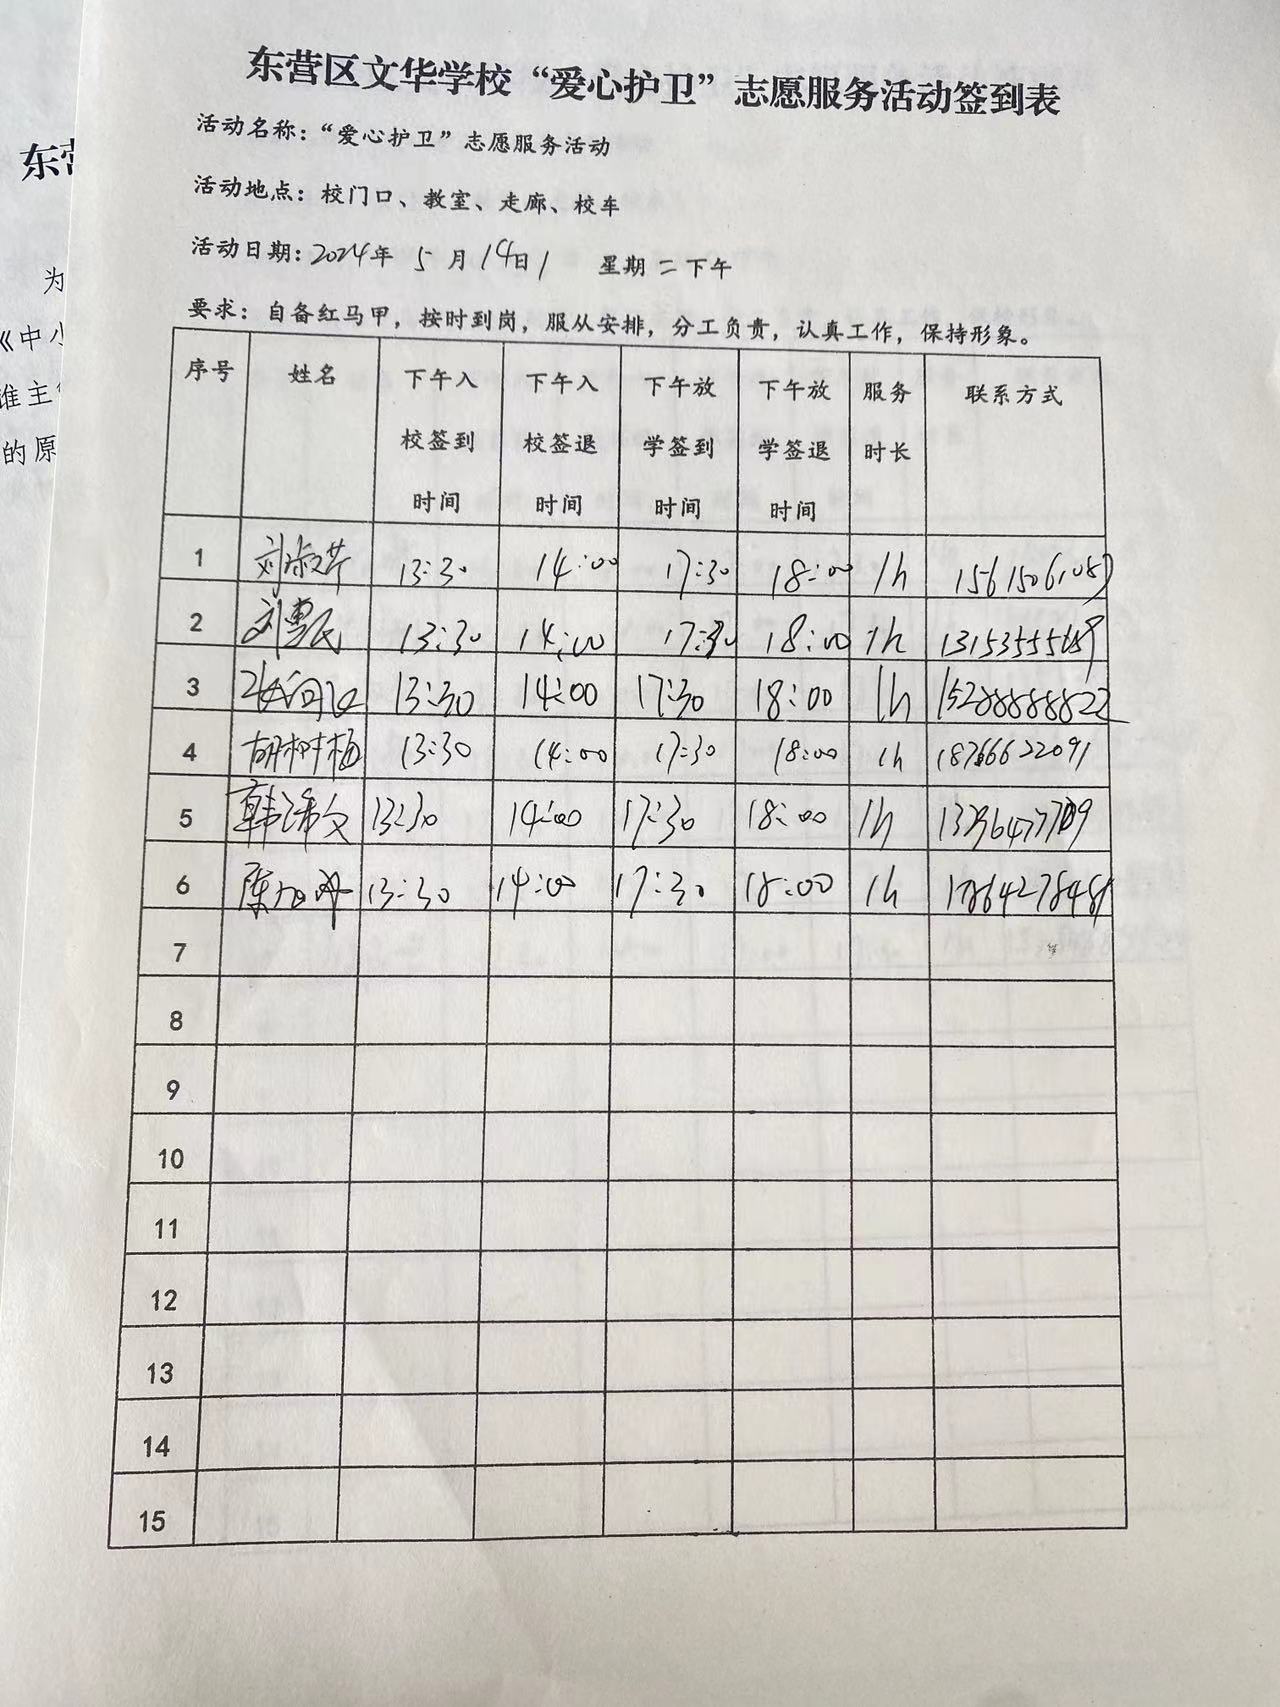 东营区文华学校“爱心护卫”志愿服务活动签到表
活动名称：“爱心护卫”志愿服务活动
活动地点：校门口、教室、走廊、校车
活动日期：2024年 5 月 14日 星期 二 下午
要求：自备红马甲，按时到岗，服从安排，分工负责，认真工作，保持形象。
序号 姓名 下午入校签到时间 下午入校签退时间 下午放学签到时间 下午放学签退时间 服务时长 联系方式
1 刘淑芹 13:30 14:00 17:30 18:00 1h
2 刘惠民 13:30 14:00 17:30 18:00 1h
3 13:30 14:00 17:30 18:00 1h 15288888822
4 胡树梅 13:30 14:00 17:30 18:00 1h 18766622091
5 13:30 14:00 17:30 18:00 1h
6 13:30 14:00 17:30 18:00 1h
7
8
9
10
11
12
13
14
15
东营
为
《中小
谁主
的原